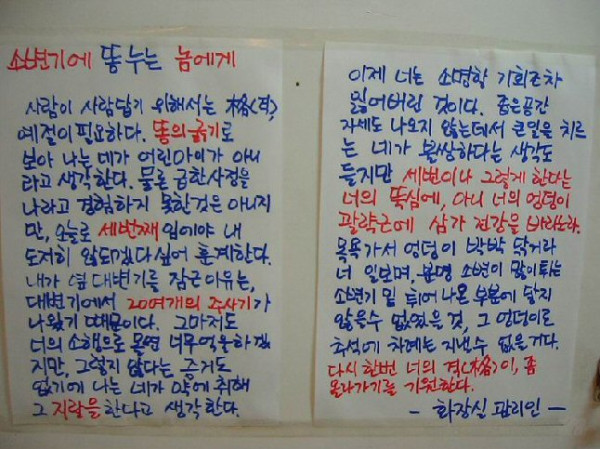 소변기에 똥 누는 놈에게
사람이 사람답기 위해서는 格(격),
예절이 필요하다. 똥의 굵기로
보아 나는 네가 어린아이가 아니
라고 생각한다. 물론 급한사정을
나라고 경험하지 못한것은 아니지
만, 오늘로 세번째 임에야 내
도저히 않되겠다 싶어 훈계한다.
내가 옆 대변기를 잠근 이유는,
대변기에서 20여개의 주사기가
나왔기 때문이다. 그마저도
너의 소행으로 몰면 너무 억울하겠
지만, 그렇지 않다는 증거도
없기에 나는 네가 약에 취해
그 지랄을 한다고 생각한다.
이제 너는 소명할 기회조차
잃어버린 것이다. 좁은공간
자세도 나오지 않는데서 큰일을 치르
는 네가 불쌍하다는 생각도
들지만 세번이나 그렇게 한다는
너의 뚝심에, 아니 너의 엉덩이
괄약근에 삼가 건강을 바라노라.
목욕가서 엉덩이 박박 닦거라
너 일보며, 분명 소변이 많이튀는
소변기 밑 튀어 나온 부분에 닿지
않을수 없었을 것, 그 엉덩이로
추석에 차례는 지낼수 없을 거다.
다시 한번 너의 격(格)이, 좀
올라가기를 기원한다.
- 화장실 관리인 -